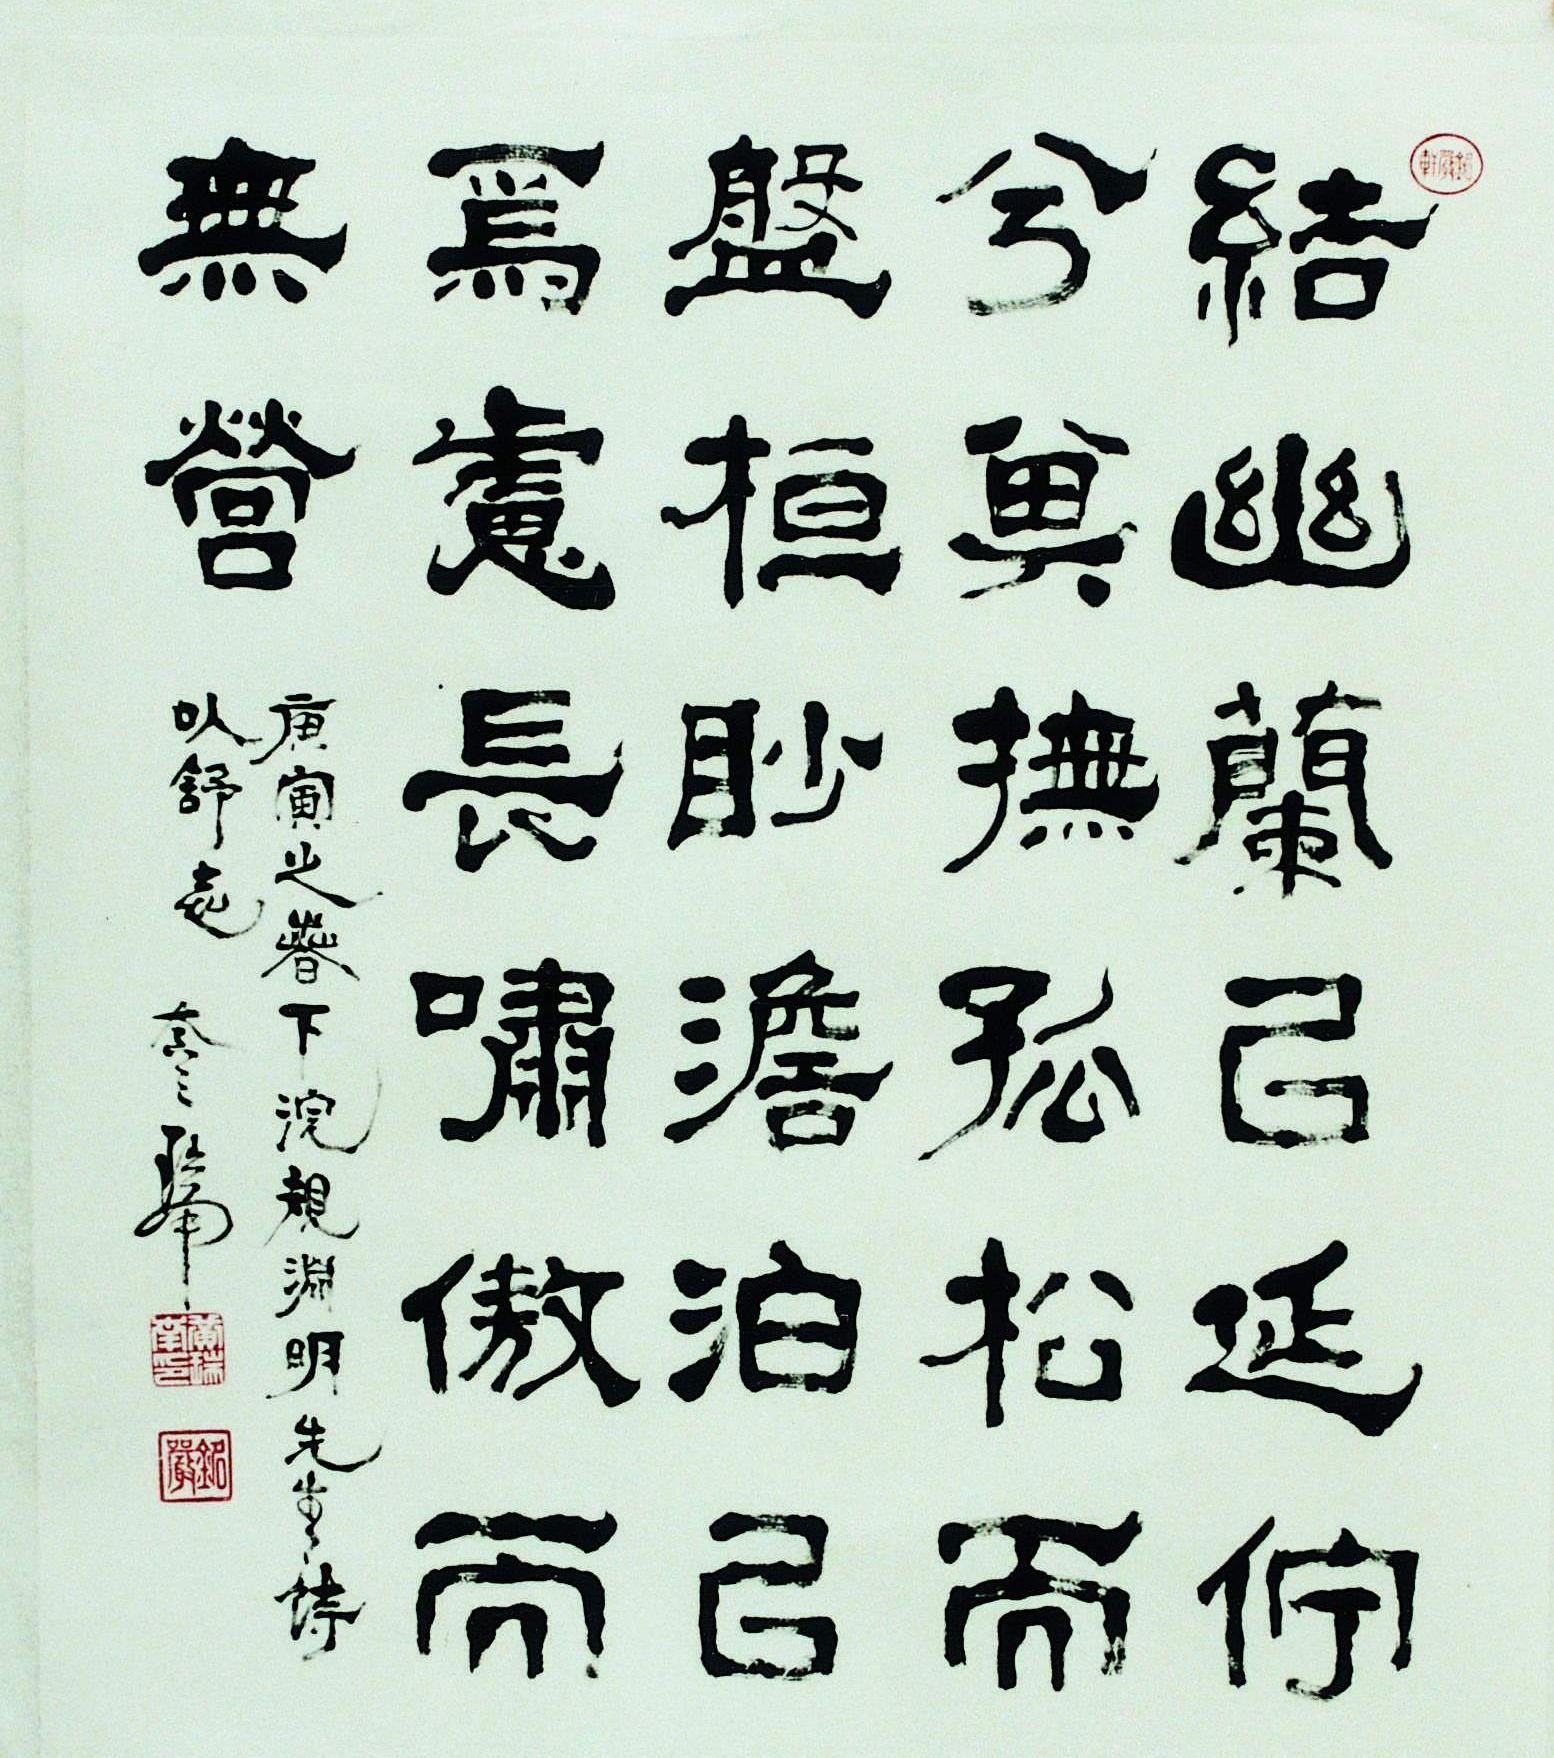 結幽蘭已延佇
兮冀撫孤松而
盤桓眇澹泊已
焉慮長嘯傲而
無營
庚寅之春下浣規淵明先生詩
以舒志
銘嚴